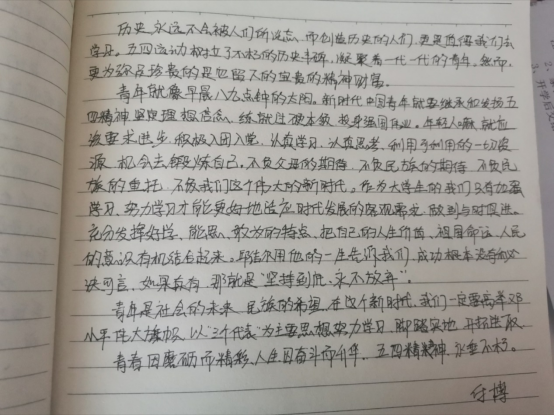 历史永远不会被人们所遗忘,而创造历史的人们,更是值得我们去
学习。五四运动树立了不朽的历史丰碑,凝聚着一代一代的青年,然而,
更为弥足珍贵的是它留下的宝贵的精神财富。
青年就像早晨八九点钟的太阳。新时代中国青年就要继承和发扬五
四精神,坚定理想信念,练就过硬本领,投身强国伟业。年轻人嘛,就应
该要求进步,积极入团入党,认真学习,认真思考,利用可利用的一切资
源、机会去锻炼自己,不负父母的期待,不负民族的期待,不负民
族的重托,不负我们这个伟大的新时代。作为大学生的我们只有加强
学习,努力学习才能更好地适应时代发展的客观需求,做到与时俱进。
充分发挥好学、能思、敢为的特点,把自己的人生价值、祖国命运、人民
的意识有机结合起来。邱吉尔用他的一生告诉我们,成功根本没有秘
诀可言,如果真有,那就是"坚持到底,永不放弃"。
青年是社会的未来,民族的希望,在这个新时代,我们一定要高举邓
小平伟大旗帜,以"三个代表"为主要思想努力学习,脚踏实地,开拓进取
青春因磨砺而精彩,人生因奋斗而升华,五四精精神,永垂不朽。
付博